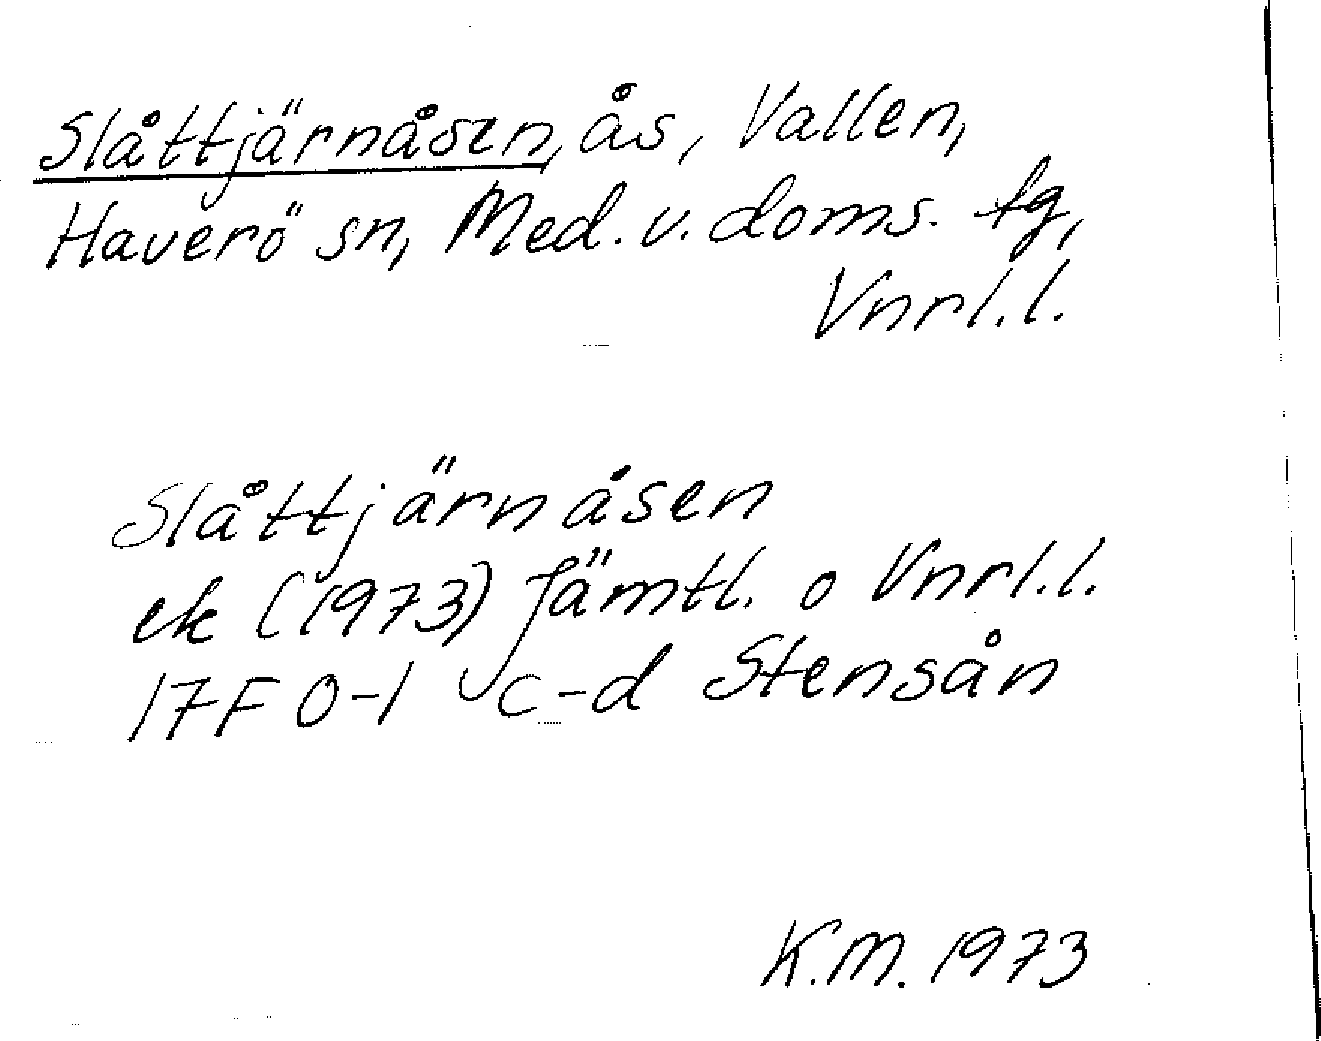 Slåttjärnåsen, ås, Vallen,
Haverö sn, Med. v. doms. tg,
Vnrl. l.
Slåttjärnåsen
ek (1973) Jämtl. o Vnrl. l.
17F 0-1 c-d Stensån
K.M. 1973